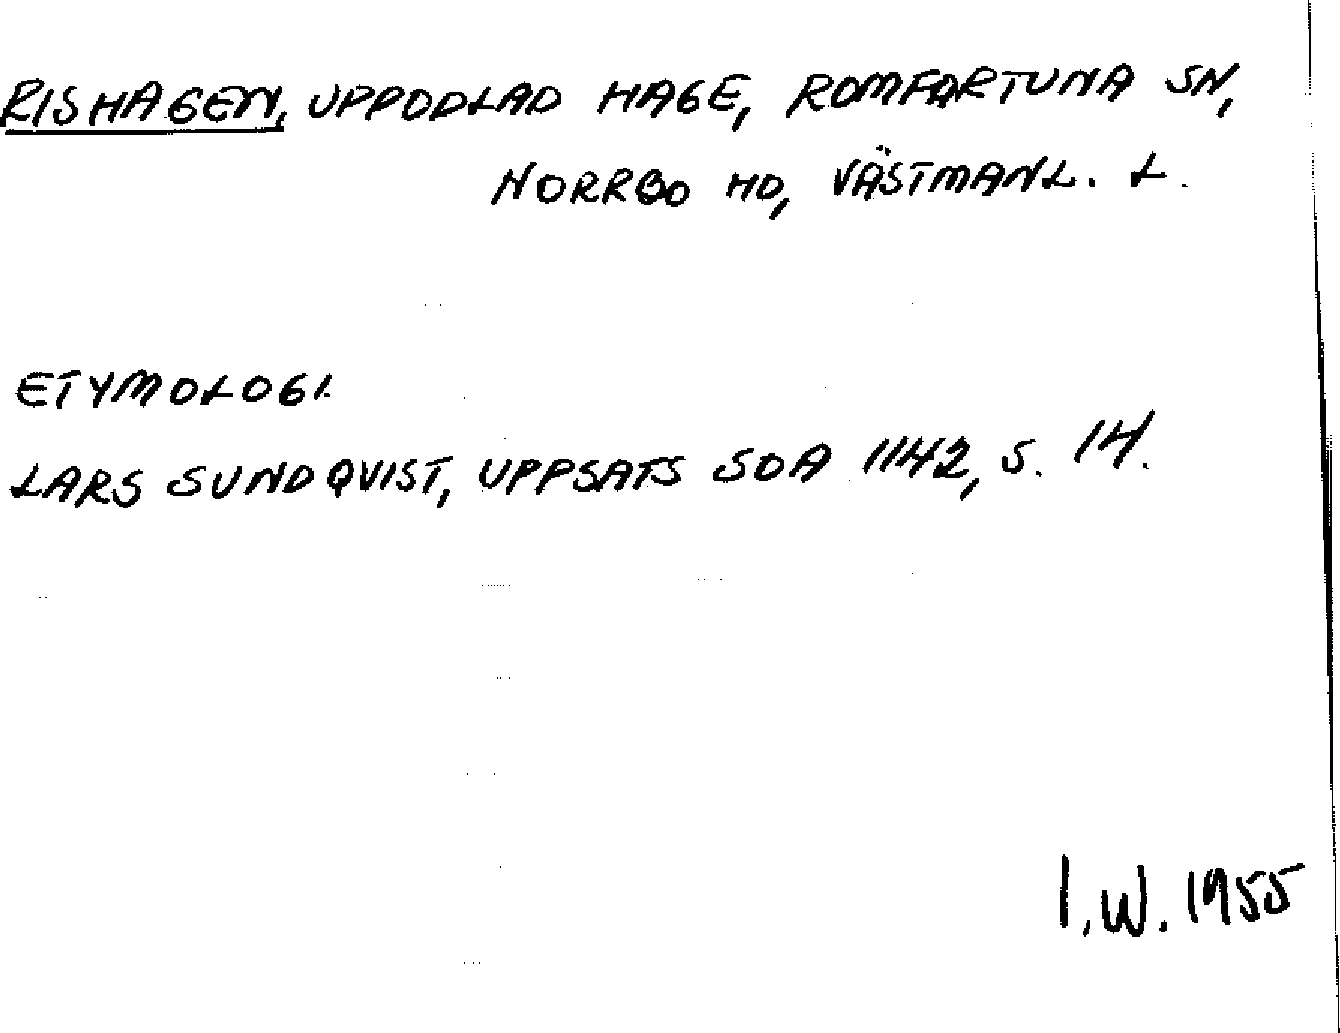 RISHAGEN, UPPODLAD HAGE, ROMFARTUNA SN,
NORRBO HD, VÄSTMANL. L.
ETYMOLOGI.
LARS SUNDQVIST, UPPSATS SOA 1142, S. 14.
I.W. 1955